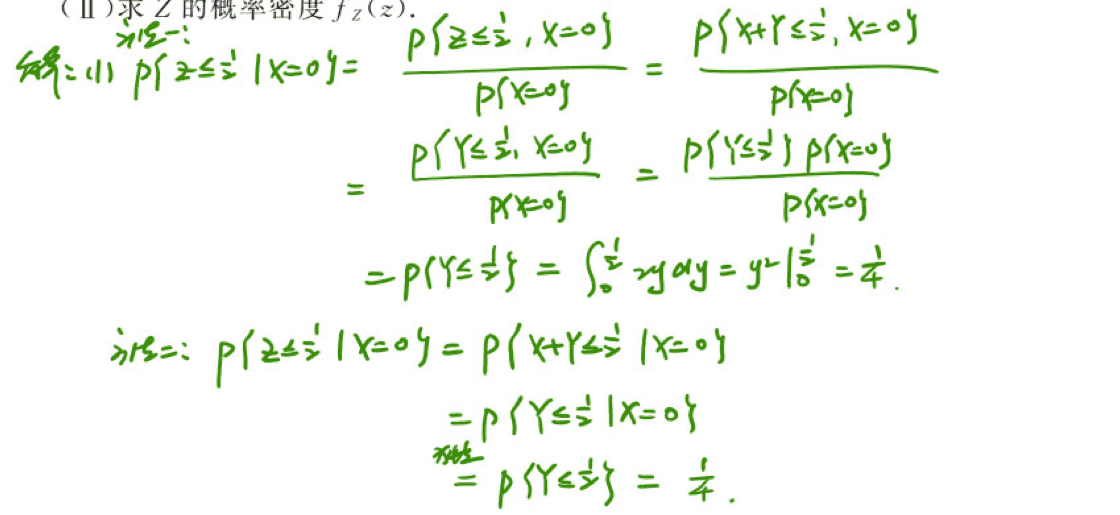 (Ⅱ)求 Z 的概率密度 f_Z(z).
法一:
解:(1) P{Z≤1/2 | X=0} = P{Z≤1/2, X=0} / P{X=0} = P{X+Y≤1/2, X=0} / P{X=0}
= P{Y≤1/2, X=0} / P{X=0} = P{Y≤1/2} P{X=0} / P{X=0}
= P{Y≤1/2} = ∫₀^{1/2} 2y dy = y² |₀^{1/2} = 1/4.
法二: P{Z≤1/2 | X=0} = P{X+Y≤1/2 | X=0}
= P{Y≤1/2 | X=0}
独立
= P{Y≤1/2} = 1/4.